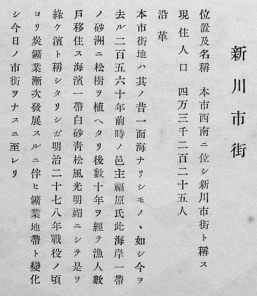 新川市街
位置及名稱　本市西南ニ位シ新川市街ト稱ス
現住人口　四万三千二百二十五人
沿革
本市街地ハ其ノ昔一面海ナリシモノヽ如シ今ヲ
去ル二百五六十年前時ノ邑主福原氏此海岸一帶
ノ砂洲ニ松樹ヲ植ヘタリ後數十年ヲ經テ漁人數
戸移住ス海濱一帶白砂靑松風光明媚ニシテ是ヲ
綠ケ濱ト稱シタリシガ明治二十七八年戰役ノ頃
ヨリ炭鑛業漸次發展スルニ伴ヒ鑛業地帶ト變化
シ今日ノ市街ヲナスニ至レリ